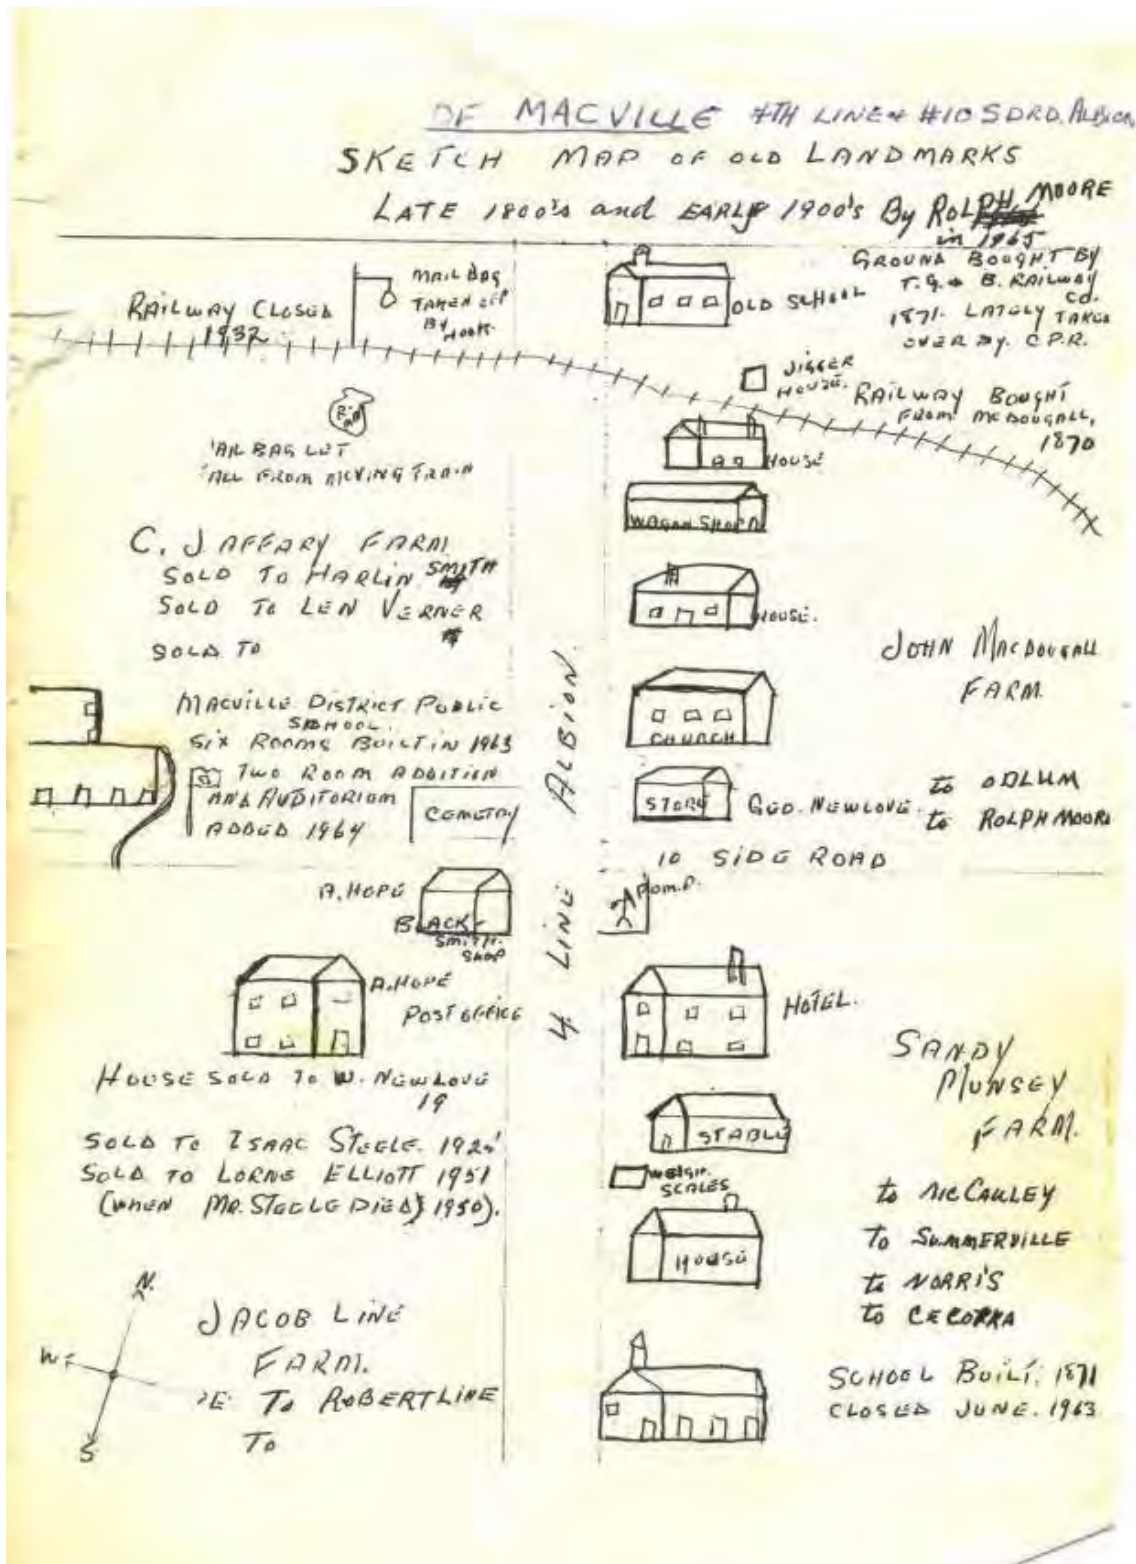 OF MACVILLE 4TH LINE & #10 SDRD. ALBION
SKETCH MAP OF OLD LANDMARKS
LATE 1800's and EARLY 1900's By ROLPH MOORE
in 1965
MAIL BAG
TAKEN OFF
BY HOOK.
RAILWAY CLOSED
1932
OLD SCHOOL
GROUND BOUGHT BY
T.G. & B. RAILWAY
CO.
1871. LATELY TAKEN
OVER BY. C.P.R.
JIGGER
HOUSE.
RAILWAY BOUGHT
FROM McDOUGALL,
1870
BAG
'AIL BAG LET
'ALL FROM MOVING TRAIN
HOUSE
WAGON SHOP
C. JAFFARY FARM
SOLD TO HARLIN SMITH
SOLD TO LEN VERNER
SOLD TO
HOUSE.
JOHN MACDOUGALL
FARM.
MACVILLE DISTRICT PUBLIC
SCHOOL.
SIX ROOMS BUILT IN 1963
TWO ROOM ADDITION
AND AUDITORIUM
ADDED 1964
CEMETRY
CHURCH
STORE
GEO. NEWLOVE.
to ODLUM
to ROLPH MOORE
10 SIDE ROAD
4 LINE ALBION.
A. HOPE
BLACK-
SMITH
SHOP
PUMP.
A. HOPE
POST OFFICE
HOTEL.
HOUSE SOLD TO W. NEWLOVE
19
SANDY
MUNSEY
FARM.
STABLE
SOLD TO ISAAC STEELE. 1925
SOLD TO LORNE ELLIOTT 1951
(WHEN MR. STEELE DIED) 1950).
WEIGH.
SCALES
HOUSE
to McCAULEY
to SUMMERVILLE
to NORRIS
to
N.
W
S
JACOB LINE
FARM.
'E: To ROBERT LINE
To
SCHOOL BUILT. 1871
CLOSED JUNE. 1963